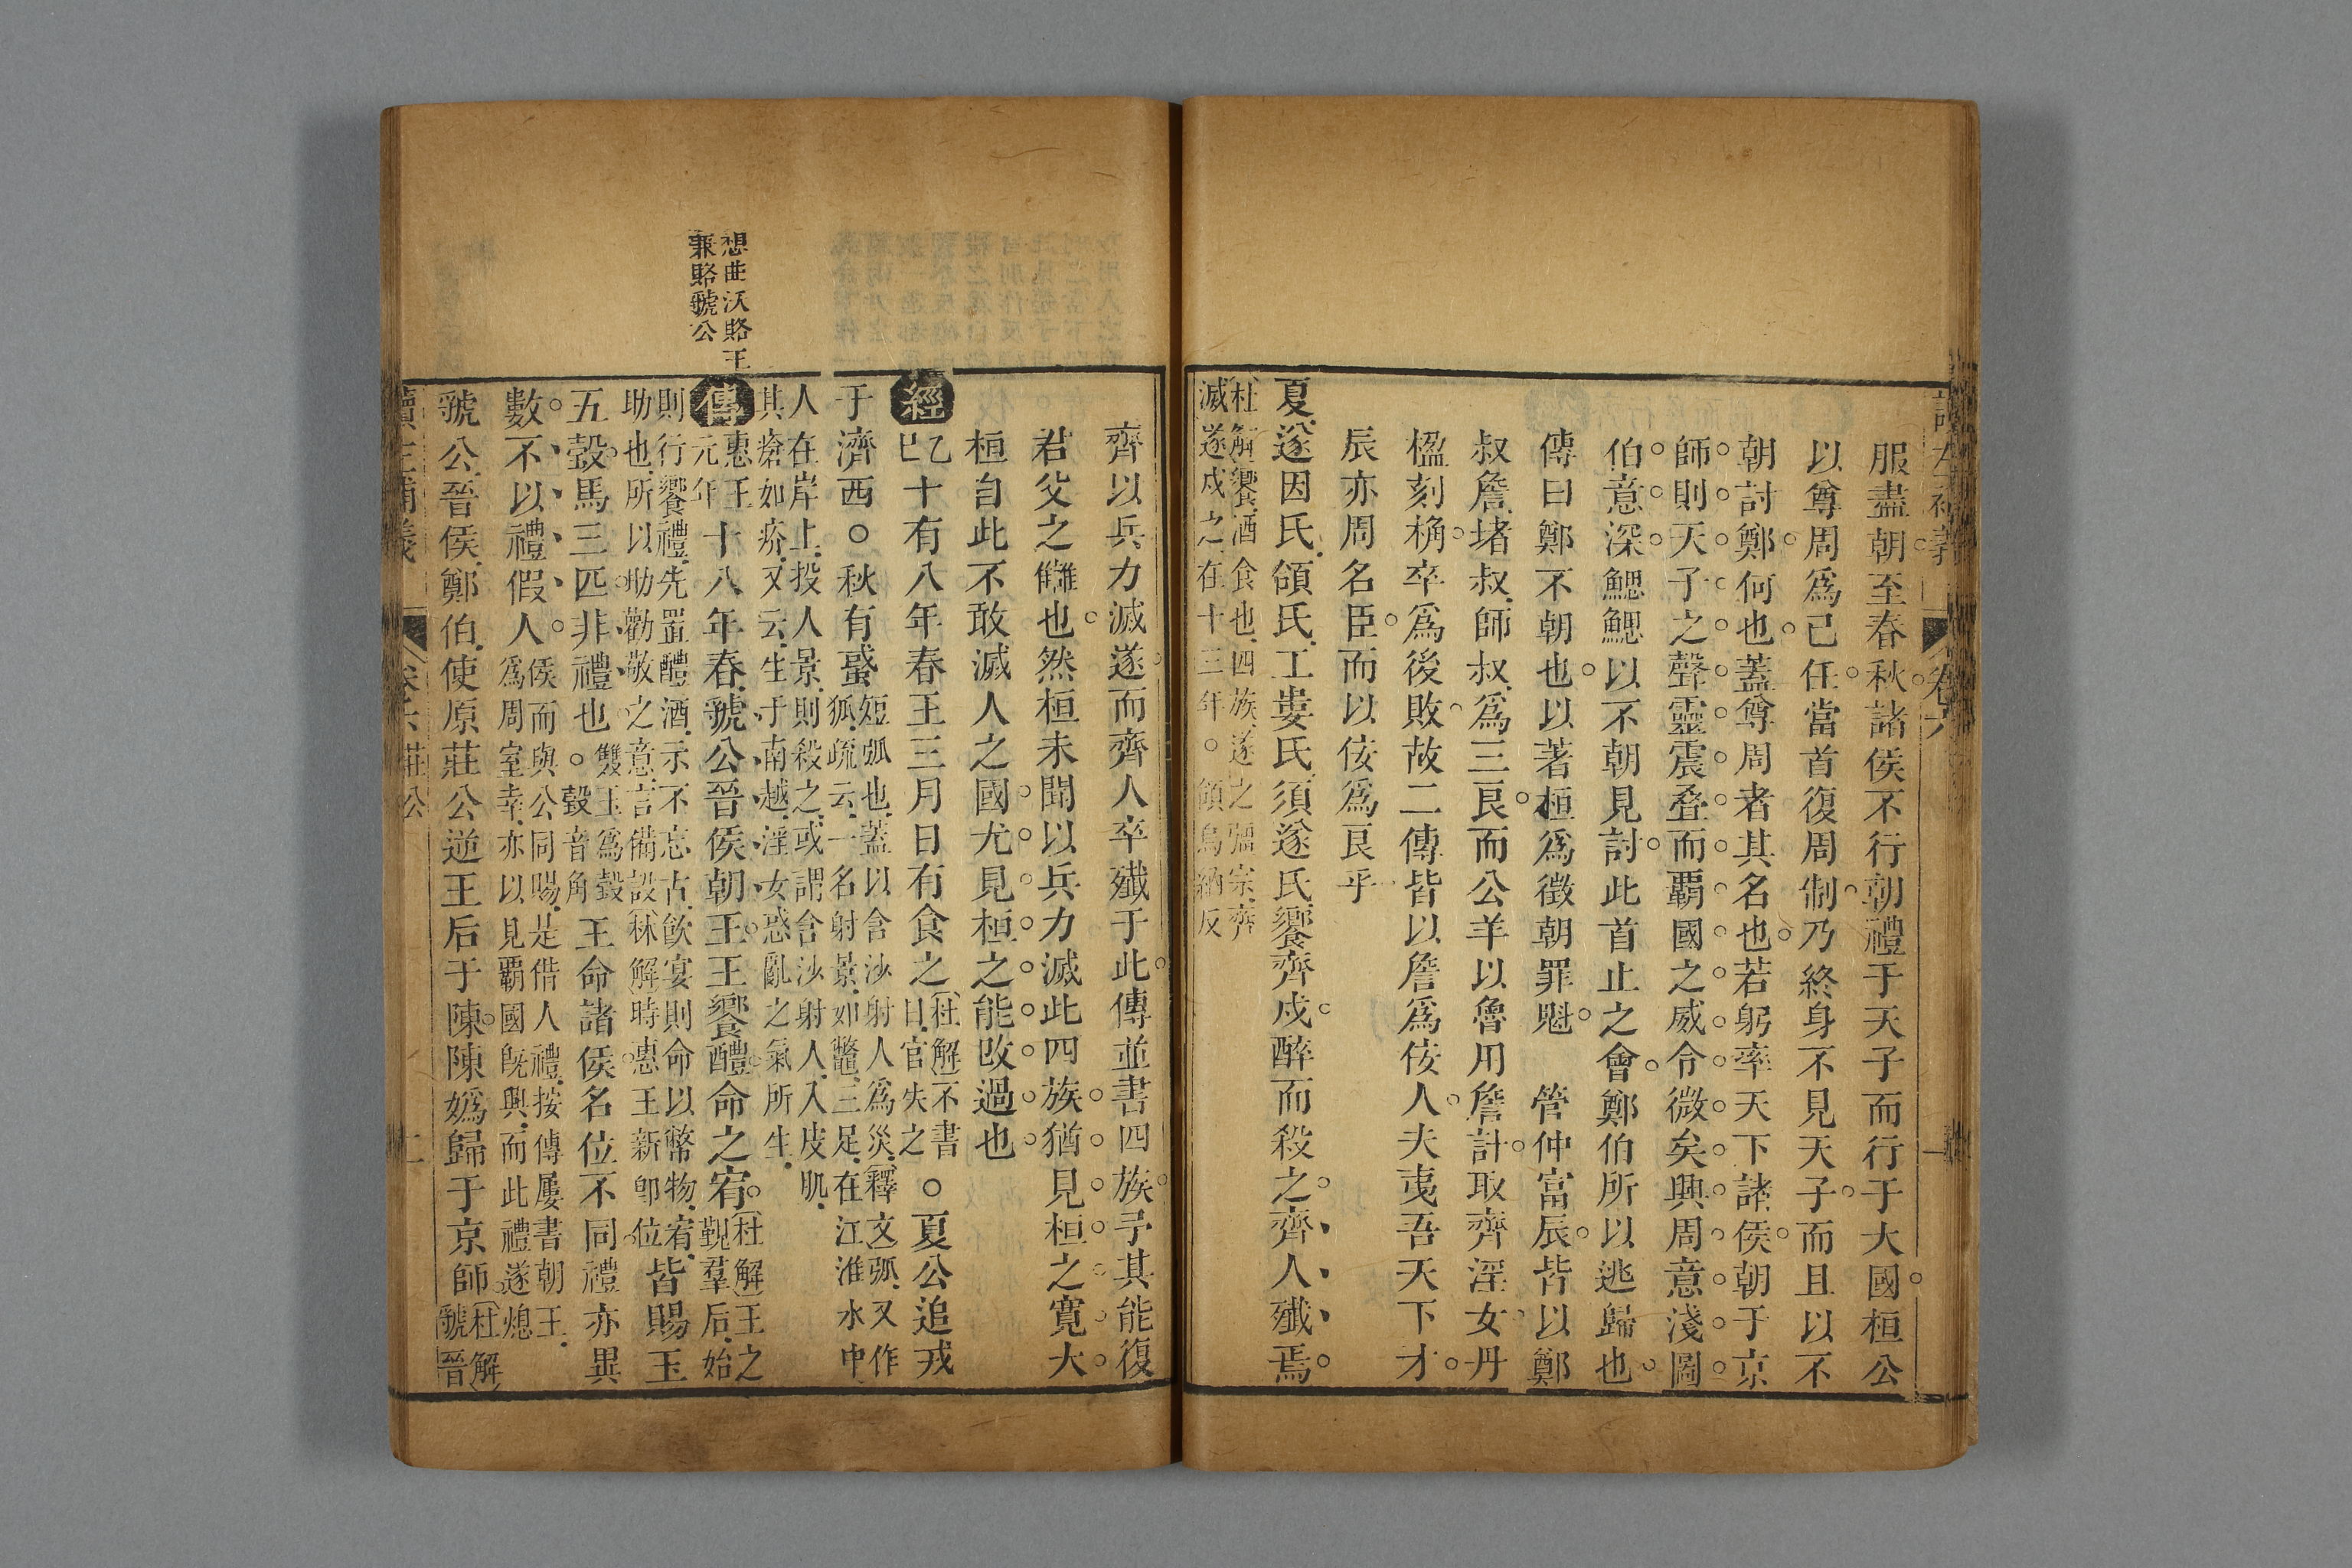 服盡朝至春秋諸侯不行朝禮于天子而行于大國桓公
以尊周爲己任當首復周制乃終身不見天子而且以不
朝討鄭何也蓋尊周者其名也若躬率天下諸侯朝于京
師則天子之聲靈震疊而覇國之威令微矣興周意淺圖
伯意深鰓鰓以不朝見討此首止之會鄭伯所以逃歸也
傳曰鄭不朝也以著桓爲徵朝罪魁 管仲富辰皆以鄭
叔詹堵叔師叔爲三良而公羊以魯用詹計取齊淫女丹
楹刻桷卒爲後敗故二傳皆以詹爲佞人夫夷吾天下才
辰亦周名臣而以佞爲良乎
夏遂因氏頜氏工婁氏須遂氏饗齊戍醉而殺之齊人殲焉
杜解饗酒食也四族遂之彊宗齊
滅遂戍之在十三年○頜烏納反
齊以兵力滅遂而齊人卒殲于此傳並書四族予其能復
君父之讎也然桓未聞以兵力滅此四族猶見桓之寬大
桓自此不敢滅人之國尤見桓之能改過也
經
乙
巳
十有八年春王三月日有食之
杜解不書
日官失之
○夏公追戎
于濟西○秋有蜮
短弧也蓋以含沙射人爲災釋文弧又作
狐疏云一名射景如鼈三足在江淮水中
人在岸上投人景則殺之或謂含沙射人入皮肌
其瘡如疥又云生于南越淫女惑亂之氣所生
想曲沃賂王
兼賂虢公
傳
惠王
元年
十八年春虢公晉侯朝王王饗醴命之宥
杜解王之
覲羣后始
則行饗禮先置醴酒示不忘古飲宴則命以幣物宥
助也所以助勸敬之意言備設林解時惠王新卽位
皆賜玉
五瑴馬三匹非禮也○
雙玉爲瑴
瑴音角
王命諸侯名位不同禮亦異
數不以禮假人
侯而與公同賜是借人禮按傳屢書朝王
爲周室幸亦以見覇國旣興而此禮遂熄
虢公晉侯鄭伯使原莊公逆王后于陳陳嬀歸于京師
杜解
虢晉
讀左補義 卷六 莊公 二